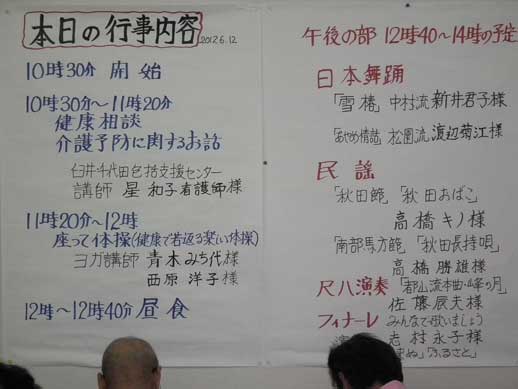 本日の行事内容 2012.6.12
10時30分 開始
10時30分～11時20分
健康相談
介護予防に関するお話
臼井千代田包括支援センター
講師 星 和子看護師様
11時20分～12時
座って体操(健康で若返る楽しい体操)
ヨガ講師 青木みち代様
西原 洋子様
12時～12時40分 昼食
午後の部 12時40～14時の予定
日本舞踊
「雪椿」中村流新井君子様
「あやめ情話」松園流渡辺菊江様
民謡
「秋田節」「秋田おばこ」
高橋キノ様
「南部馬方節」「秋田長持唄」
高橋勝雄様
尺八演奏 「都山流本曲・峰の月」
佐藤辰夫様
フィナーレ みんなで歌いましょう
志村永子様
「ふるさと」